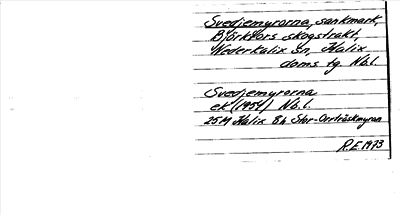 Svedjemyrorna, sankmark,
Björkfors skogstrakt,
Nederkalix sn, Kalix
doms tg. Nb.l.
Svedjemyrorna
ek (1954) Nb.l.
25M Kalix 8h Stor-Orrträskmyran
R.E. 1973